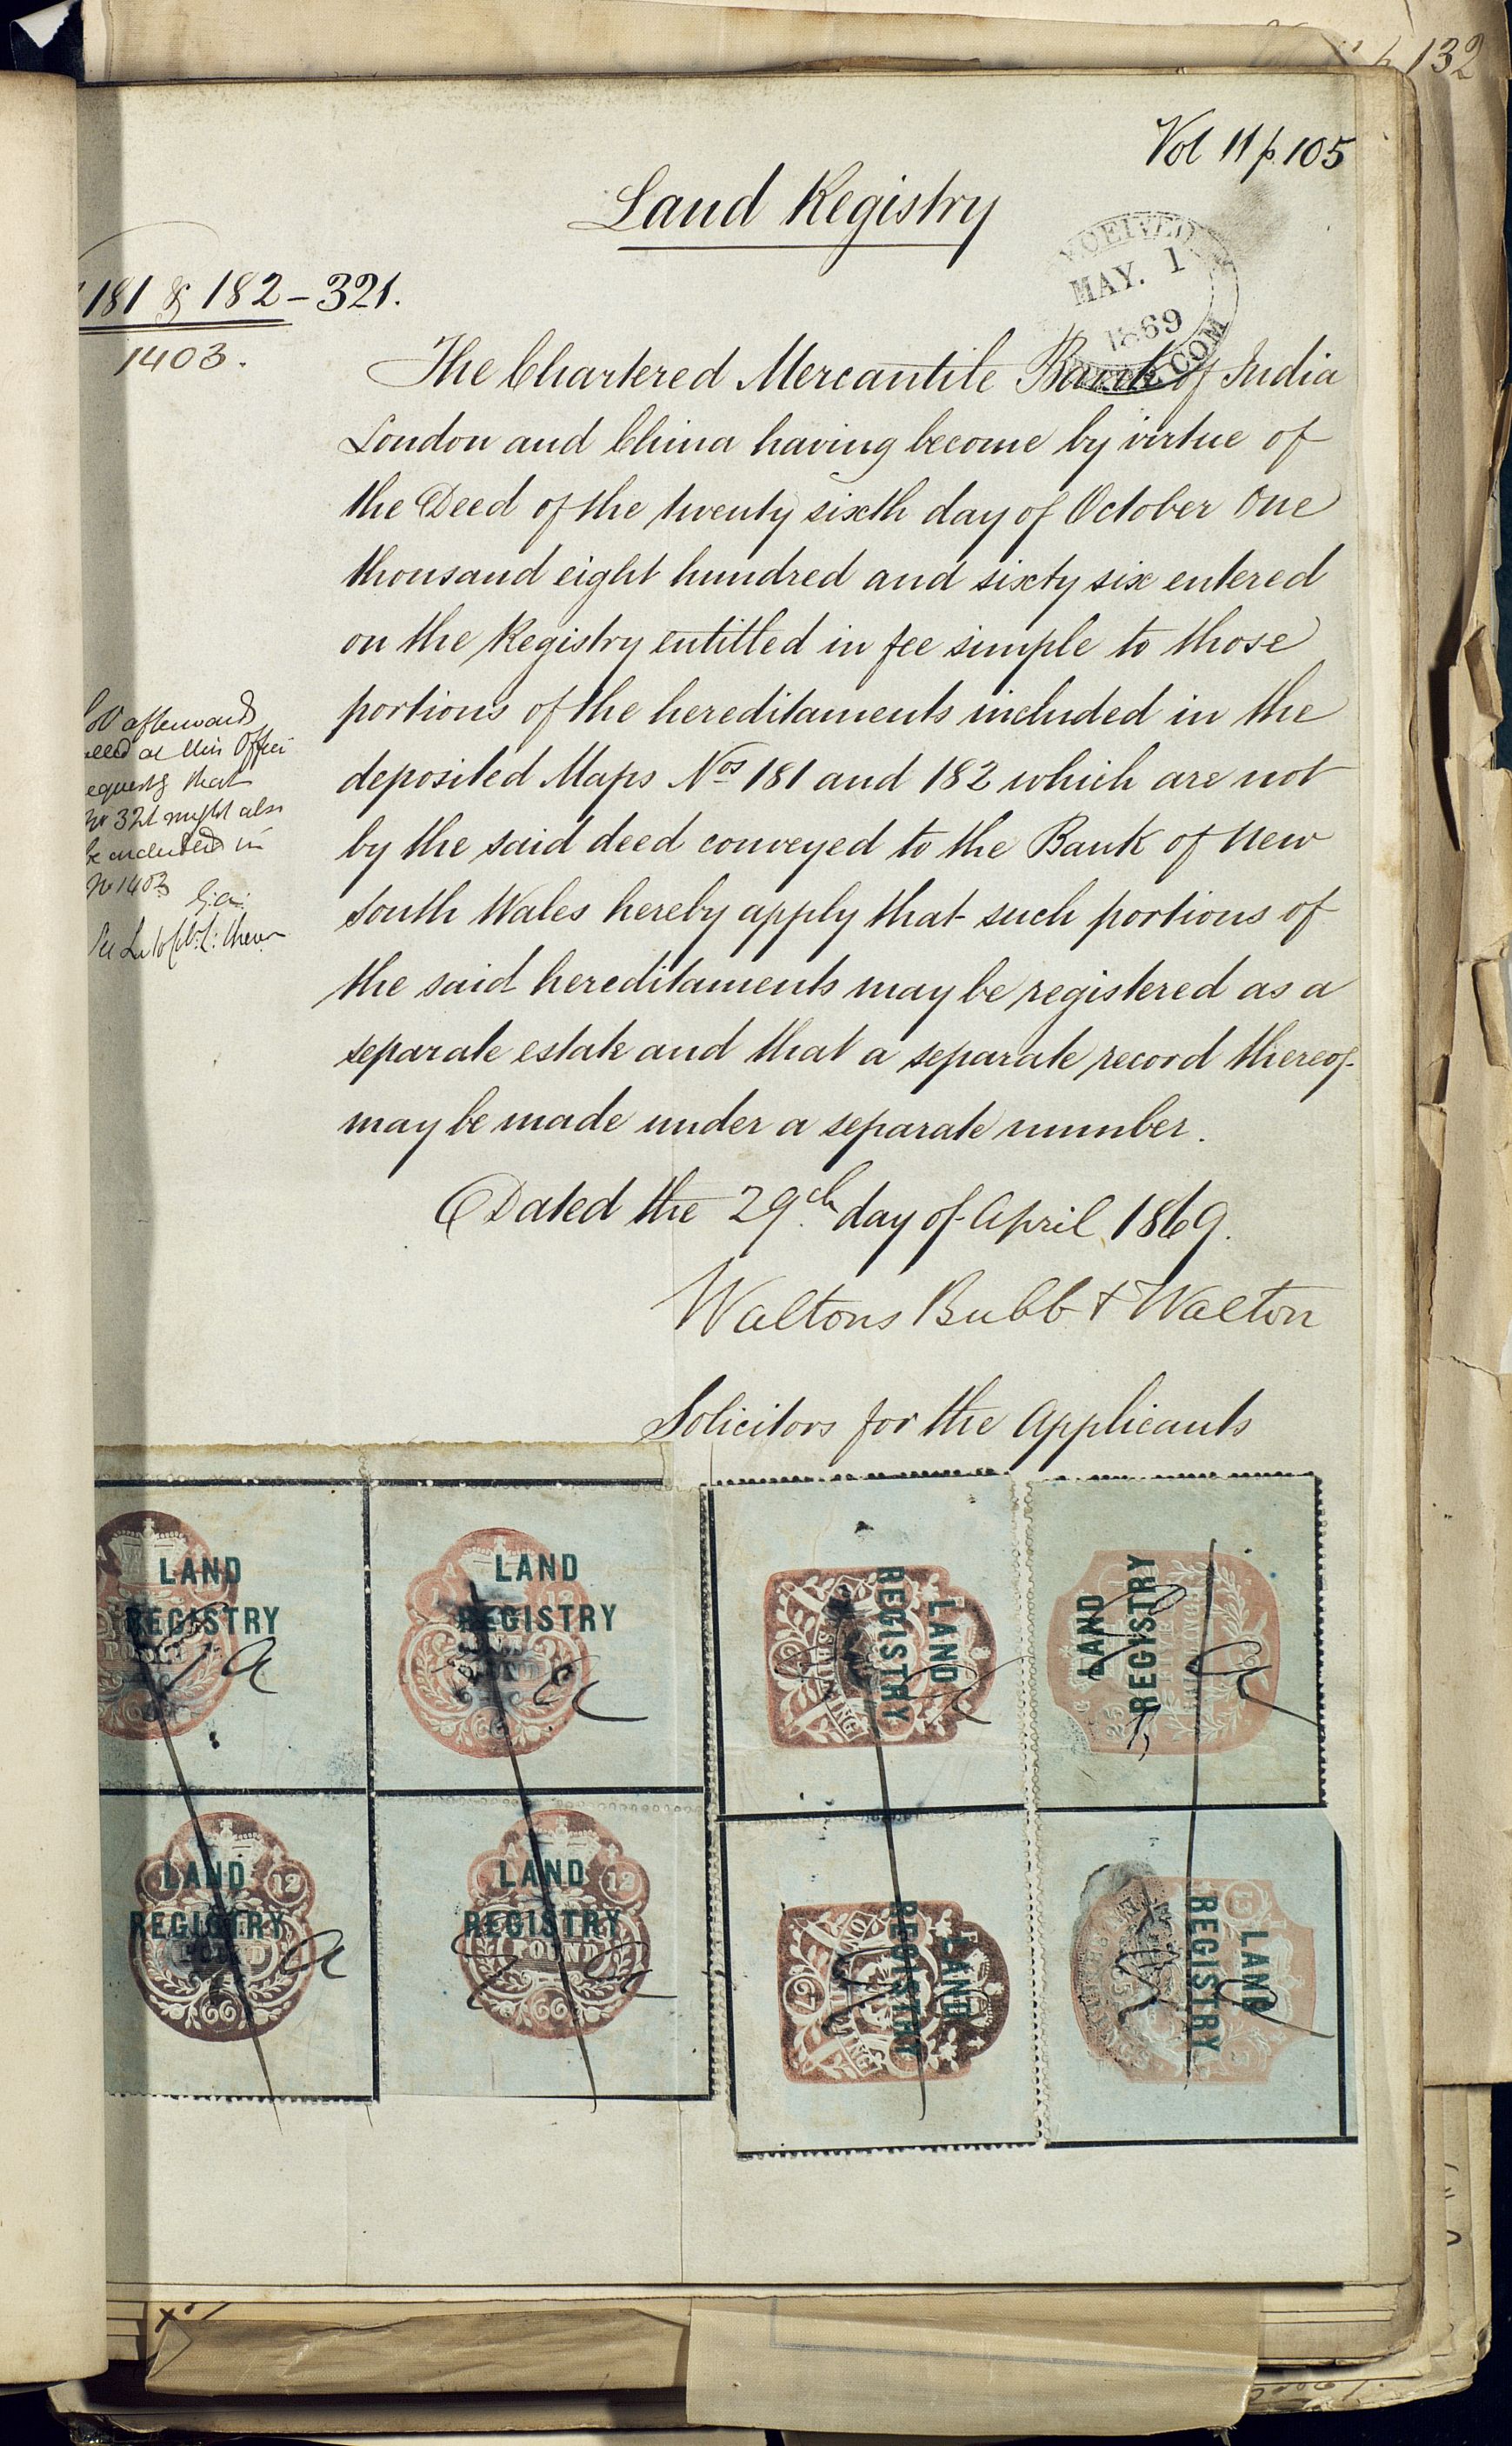 132
Vol 11 p. 105
Land Registry
RECEIVED
MAY. 1
1869
181 & 182 – 321.
1403.
The Chartered Mercantile Bank of India
London and China having become by virtue of
the Deed of the twenty sixth day of October One
thousand eight hundred and sixty six entered
on the Registry entitled in fee simple to those
portions of the hereditaments included in the
deposited Maps Nos 181 and 182 which are not
by the said deed conveyed to the Bank of New
South Wales hereby apply that such portions of
the said hereditaments may be registered as a
separate estate and that a separate record thereof
may be made under a separate number.
afterwards
at this Office
that
No 321 might also
be included in
No 1403
Dated the 29th day of April 1869.
Waltons Bubb & Walton
Solicitors for the Applicants
LAND
REGISTRY
LAND
REGISTRY
LAND
REGISTRY
LAND
REGISTRY
LAND
REGISTRY
12
LAND
REGISTRY
12
POUND
66
LAND
REGISTRY
LAND
REGISTRY